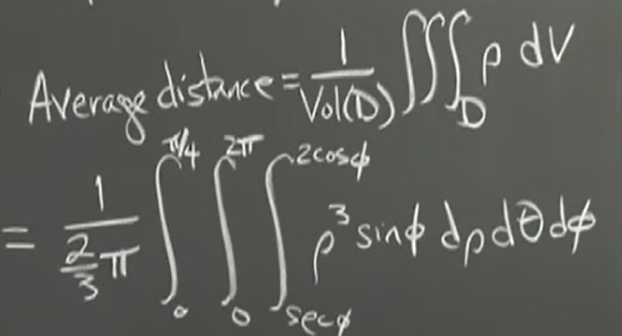 Average distance = 1/Vol(D) ∭_D ρ dV
= 1/(2/3 π) ∫_0^{π/4} ∫_0^{2π} ∫_{secφ}^{2cosφ} ρ³ sinφ dρ dθ dφ